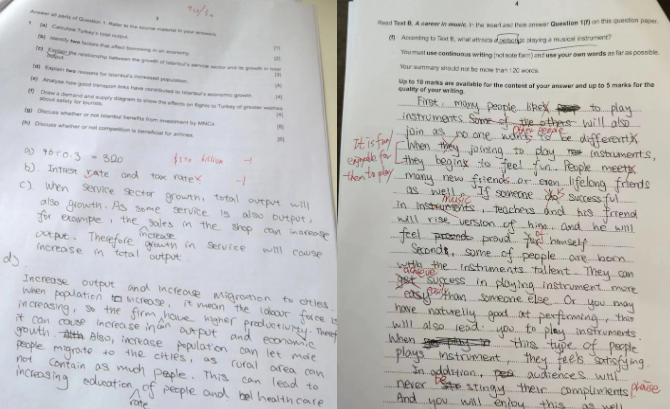 3
Answer all parts of Question 1. Refer to the source material in your answers.
1 (a) Calculate Turkey's total output. [1]
(b) Identify two factors that affect borrowing in an economy. [2]
(c) Explain the relationship between the growth of Istanbul's service sector and its growth in total output.
(d) Explain two reasons for Istanbul's increased population. [4]
(e) Analyse how good transport links have contributed to Istanbul's economic growth. [4]
(f) Draw a demand and supply diagram to show the effects on flights to Turkey of greater worries about safety for tourists.
(g) Discuss whether or not Istanbul benefits from investment by MNCs.
(h) Discuss whether or not competition is beneficial for airlines.
a) 90÷0.3 = 300 $300 billion -1
b). Intrest rate and tax rate -1
c). When service sector growth, total output will
also growth. As some service is also output,
for example, the sales in the shop can increase
output. Therefore increase growth in service will cause
increase in total output.
d)
Increase output and increase Migration to cities.
When population increase, it mean the labour force is
increasing, so the firm have higher productivity.
it can cause increase in output and economic
growth. Also, increase population can let more
people migrate to the cities, as rural area can
not contain as much people. This can lead to
increasing education rate of people and health care
4
Read Text B, A career in music, in the insert and then answer Question 1(f) on this question paper.
(f) According to Text B, what attracts a person to playing a musical instrument?
You must use continuous writing (not note form) and use your own words as far as possible.
Your summary should not be more than 120 words.
Up to 10 marks are available for the content of your answer and up to 5 marks for the quality of your writing.
First, many people likes to play
instruments. Some of the others will also
other people
join as no one wants to be different
It is fun/ enjoyable for them to play
When they joining to play instruments,
they begins to feel fun. People meets
many new friends or even lifelong friends
as well. If someone successful
music
in instruments, teachers and his friend
will rise version of him and he will
feel proud of himself
Second, some of people are born
with the instruments tallent. They can
achieve
get success in playing instrument more
easily than someone else. Or you may
have naturelly good at performing, this
will also lead you to play instruments.
When this type of people
plays instrument, they feels satisfying.
In addition, audiences will
never be stingy their compliments praise
And you will enjoy this as well